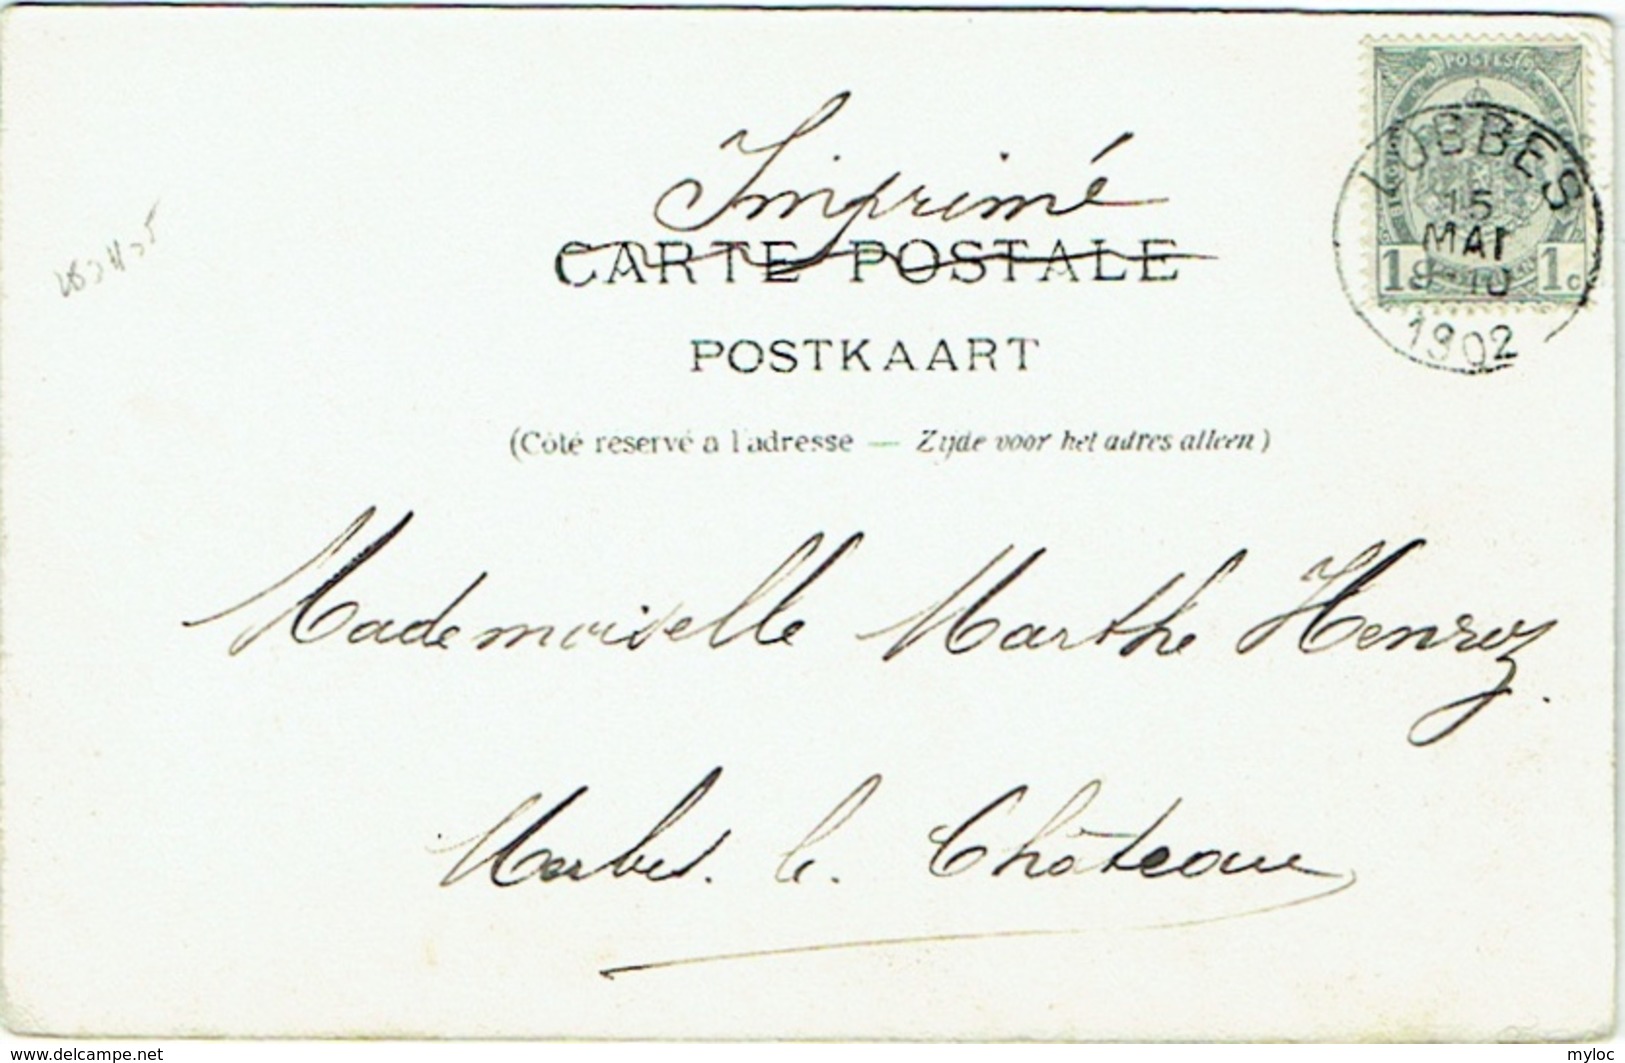 POSTES
LOBBES
15
MAI
1902
1 1c
Imprimé
CARTE POSTALE
POSTKAART
(Côté réservé a l'adresse — Zijde voor het adres alleen)
Mademoiselle Marthe Henroz.
Marbes. le. Château
www.delcampe.net
myloc